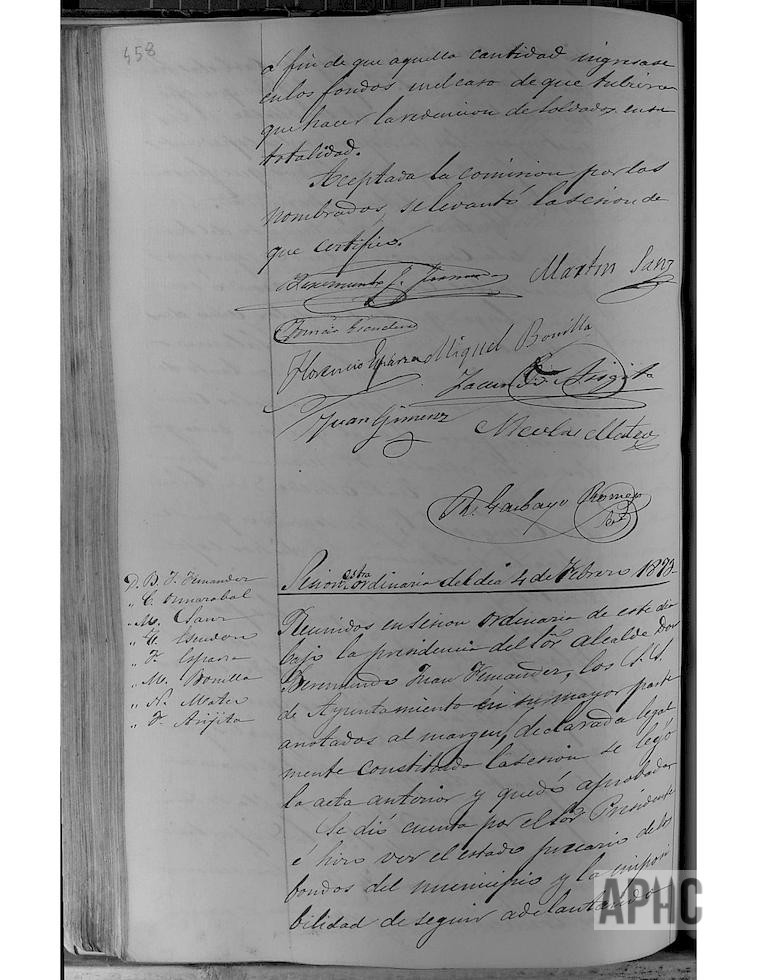 458
á fin de que aquella cantidad ingresase
en los fondos en el caso de que tubiera
que hacer la redencion de soldados en su
totalidad.
Aceptada la comision por los
nombrados, se levantó la sesion de
que certifico.
Beremundo J. Fernandez
Martin Sanz
Tomás Escudero
Florencio Esparza
Miguel Bonilla
Facundo Arigita
Juan Gimenz
Nicolas Mateo
Garbayo Romeo
Sesion extra ordinaria del dia 4 de Febrero 1873.
D. B. J. Fernander
" C. Omarabal
" M. Sanz
" T. Escudero
" F. Esparza
" M. Bonilla
" N. Mateo
" F. Arijita
Reunidos en sesion ordinaria de este dia
bajo la presidencia del Sor. Alcalde Don
Beremundo Juan Fernander, los S.S.
de Ayuntamiento en su mayor parte
anotados al margen, declarada legal
mente constituida la sesion se leyó
la acta anterior y quedó aprobada
Se dió cuenta por el Sor. Presidente
é hizo ver el estado precario de los
fondos del municipio y la imposi
bilidad de seguir adelantando
APHC